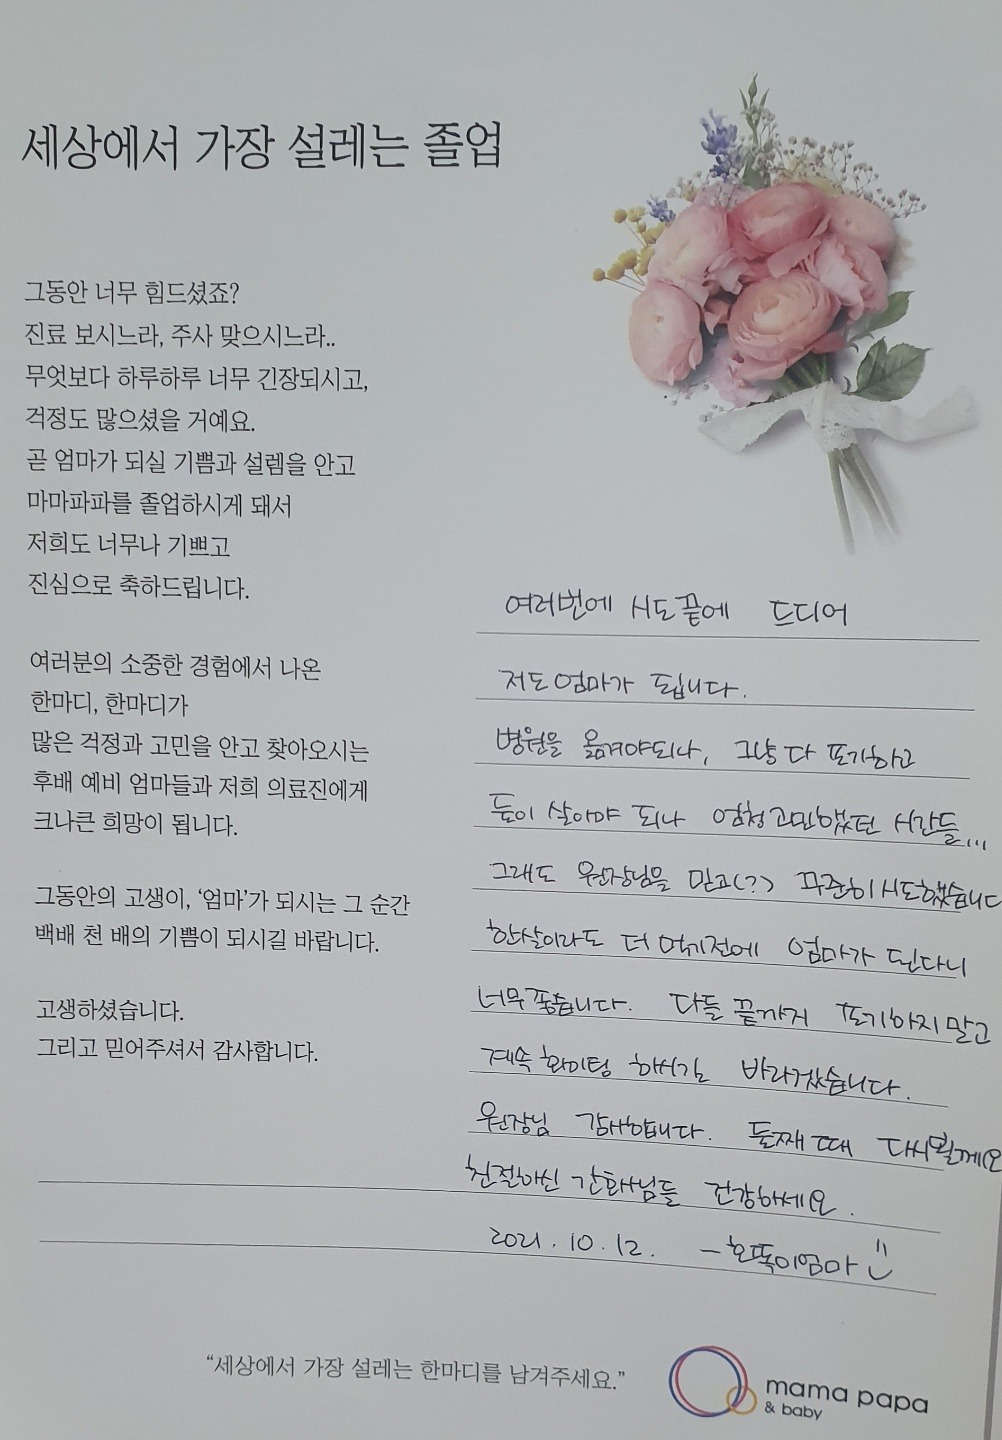 세상에서 가장 설레는 졸업
그동안 너무 힘드셨죠?
진료 보시느라, 주사 맞으시느라..
무엇보다 하루하루 너무 긴장되시고,
걱정도 많으셨을 거예요.
곧 엄마가 되실 기쁨과 설렘을 안고
마마파파를 졸업하시게 돼서
저희도 너무나 기쁘고
진심으로 축하드립니다.
여러분의 소중한 경험에서 나온
한마디, 한마디가
많은 걱정과 고민을 안고 찾아오시는
후배 예비 엄마들과 저희 의료진에게
크나큰 희망이 됩니다.
그동안의 고생이, '엄마'가 되시는 그 순간
백배 천 배의 기쁨이 되시길 바랍니다.
고생하셨습니다.
그리고 믿어주셔서 감사합니다.
여러번에 시도끝에 드디어
저도 엄마가 됩니다.
병원을 옮겨야되나, 그냥 다 포기하고
둘이 살아야 되나 엄청고민했던 시간들...
그래도 원장님을 믿고(??) 꾸준히 시도했습니다
한살이라도 더 먹기전에 엄마가 된다니
너무좋습니다. 다들 끝까지 포기하지말고
계속 화이팅 하시길 바라겠습니다.
원장님 감사합니다. 둘째 때 다시뵐께요
친절하신 간호사님들 건강하세요.
2021. 10. 12. - 호똑이엄마
"세상에서 가장 설레는 한마디를 남겨주세요."
mama papa
& baby